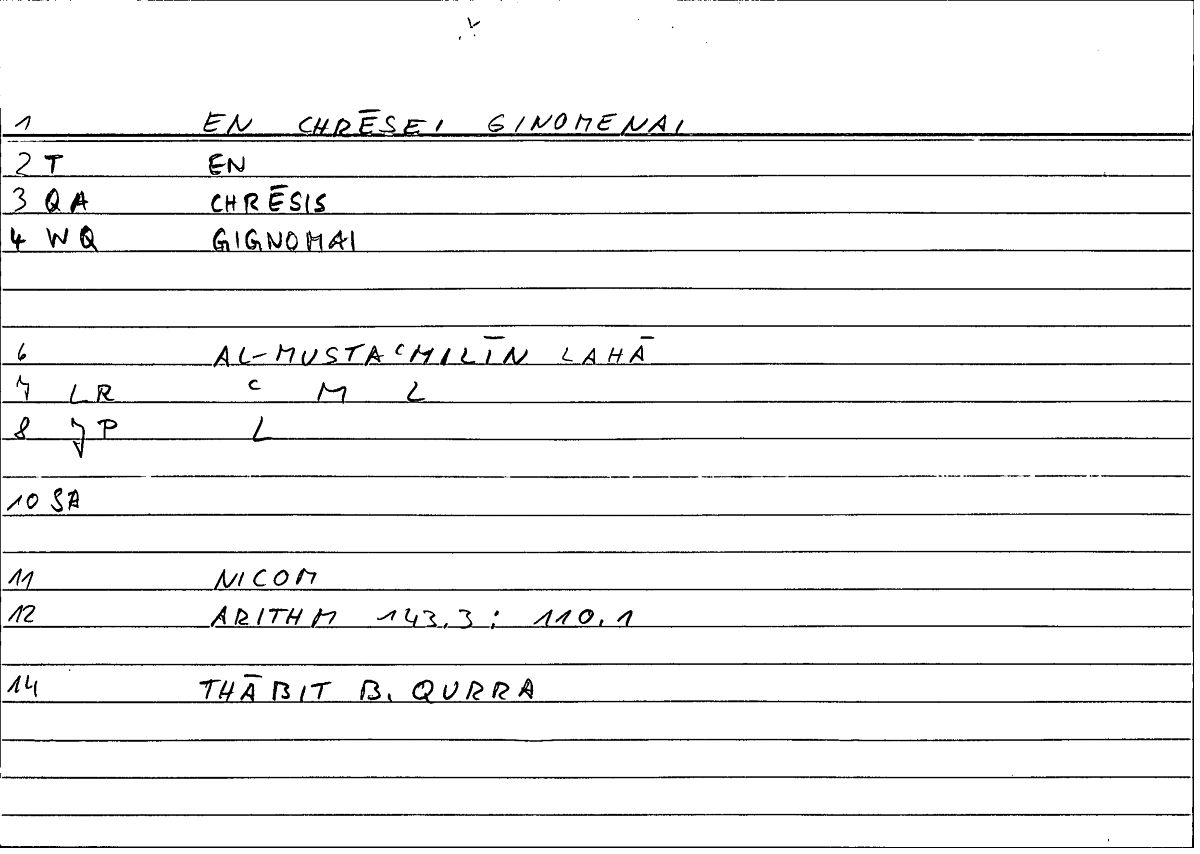 1 EN CHRĒSEI GINOMENAI
2 T EN
3 QA CHRĒSIS
4 WQ GIGNOMAI
6 AL-MUSTAᶜMILĪN LAHĀ
7 LR ᶜ M L
8 JP L
10 SA
11 NICOM
12 ARITHM 143.3 : 110.1
14 THĀBIT B. QURRA